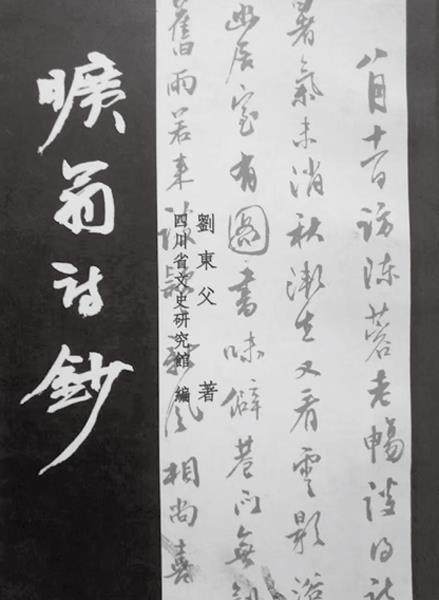 曠翁詩鈔
劉東父 著
四川省文史研究館 編
八月十一日訪陳蓉老暢談得詩
暑氣未消秋漸生又看雲影
幽居室有圖書味僻巷而無
舊雨若来談 風相尚喜